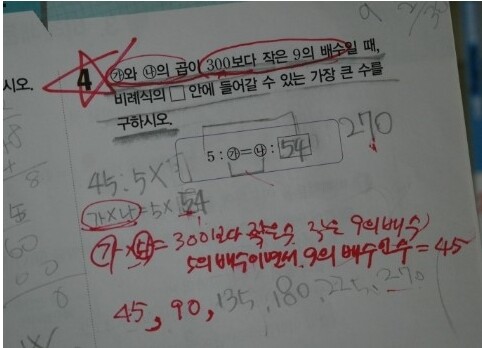 4 ㉮와 ㉯의 곱이 300보다 작은 9의 배수일 때,
시오.
비례식의 □ 안에 들어갈 수 있는 가장 큰 수를
구하시오.
270
5 : ㉮ = ㉯ : 54
45 : 5 ×
가×나 = 5× 54
㉮×㉯ = 300보다 작은수 작은 9의 배수
5의 배수이면서 9의 배수인수 = 45
45, 90, 135, 180, 225, 270